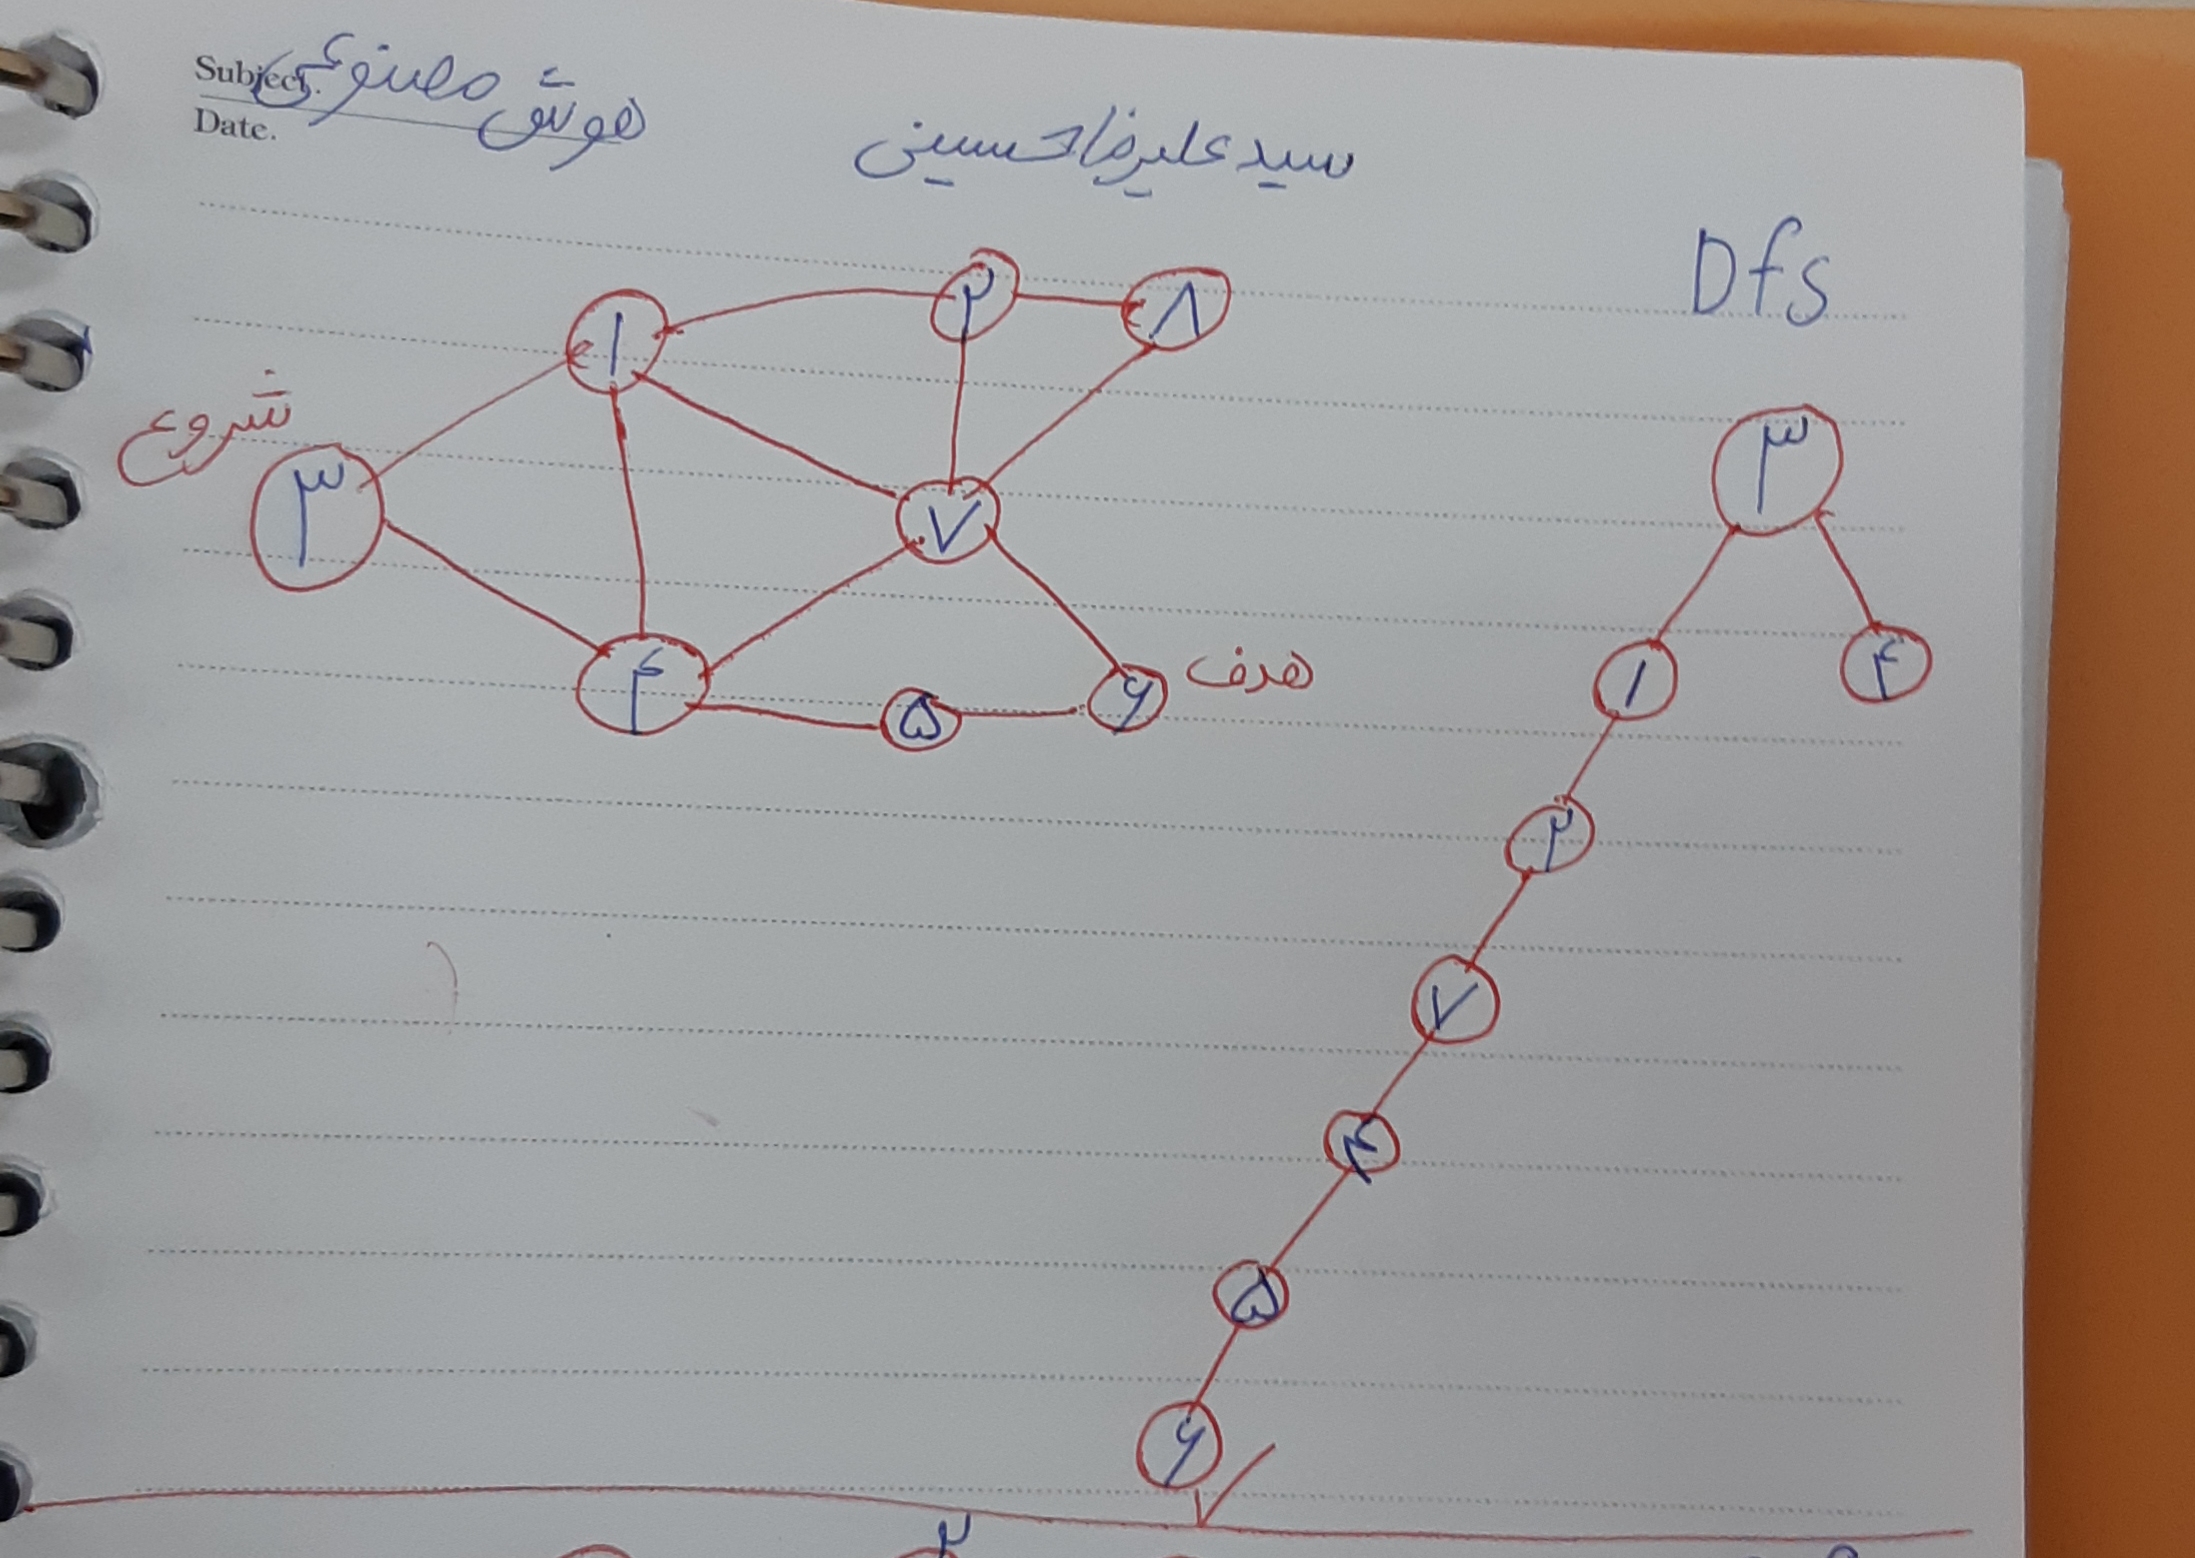 Subject. هوش مصنوعی
Date.
سید علیرضا حسینی
Dfs
۲ ۸
۱
شروع
۳ ۷
۴ ۵ ۶ هدف
۳
۱ ۴
۲
۷
۴
۵
۶
۲